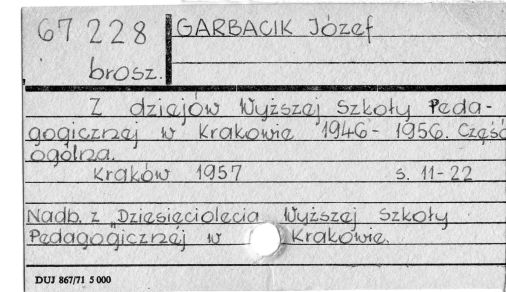 67 228
brosz.
GARBACIK Józef
Z dziejów Wyższej Szkoły Peda-
gogicznej w Krakowie 1946-1956. Część
ogólna.
Kraków 1957 s. 11-22
Nadb. z "Dziesięciolecia Wyższej Szkoły
Pedagogicznej w Krakowie.
DUJ 867/71 5 000